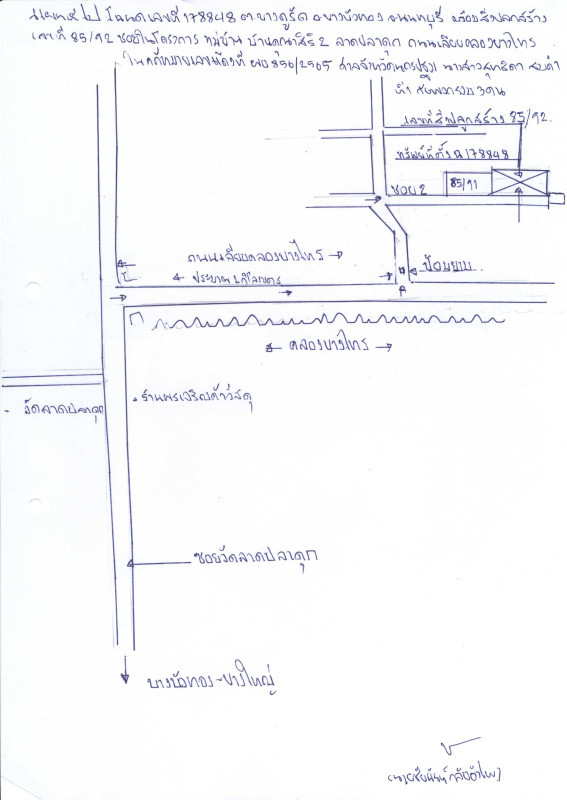 โฉนดเลขที่ 178848 ต บางคูรัด อ บางบัวทอง จ นนทบุรี พร้อมสิ่งปลูกสร้าง
เลขที่ 85/92 ซอย โครงการ หมู่บ้าน 2 ลาดปลาดุก ถนนเลียบคลองบางไทร
ในคดีหมายเลขแดงที่ ผบ 856/2565 ศาลจังหวัดนครปฐม นางสาวสุทธิดา
ที่1 กับพวกรวม 3 คน
เลขที่สิ่งปลูกสร้าง 85/92
ทรัพย์ที่ตั้ง ฉ 178848
ซอย 2
85/91
ถนนเลียบคลองบางไทร
ประมาณ 1 กิโลเมตร
ป้อมยาม
คลองบางไทร
วัดลาดปลาดุก
ร้านพรเจริญค้าวัสดุ
ซอยวัดลาดปลาดุก
บางบัวทอง-บางใหญ่